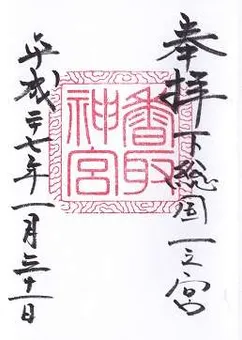 奉拝 下総国一之宮
香取
神宮
平成二十七年一月三十一日